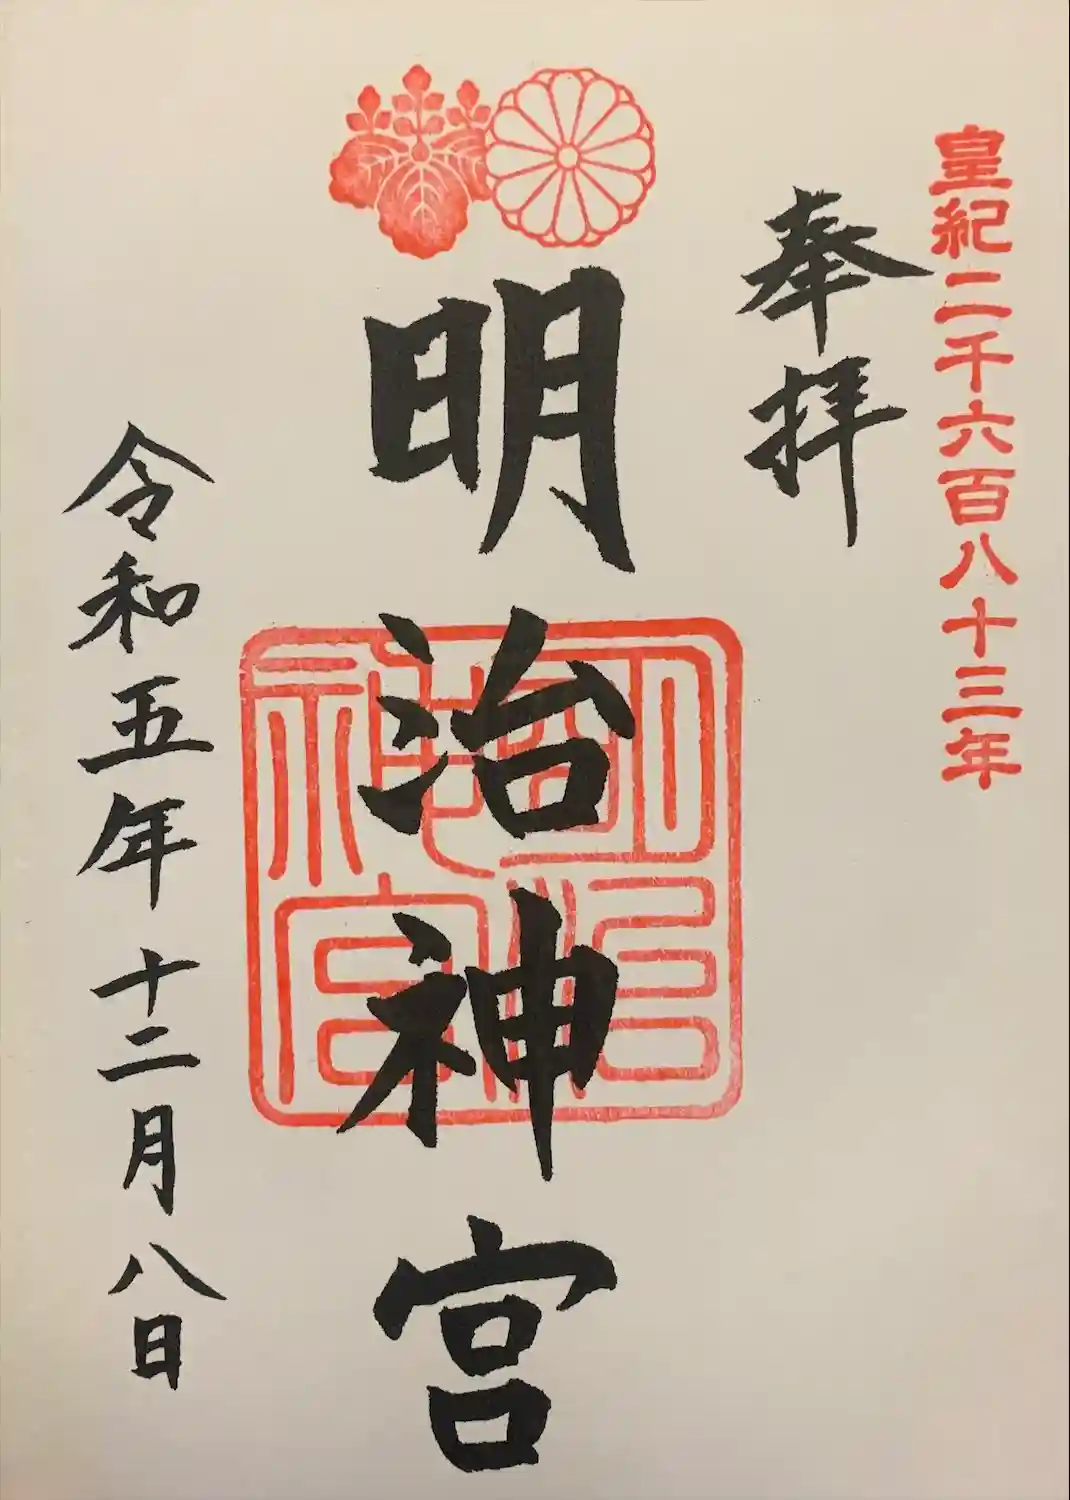 皇紀二千六百八十三年
奉拝
明治神宮
明治神宮
令和五年十二月八日